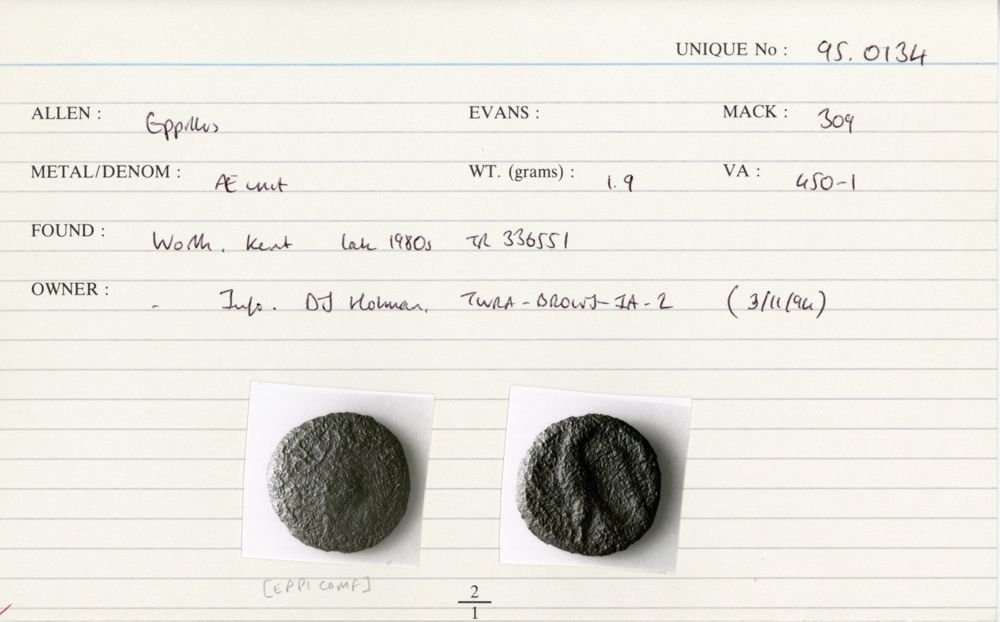 UNIQUE No : 95.0134
ALLEN : Eppillus EVANS : MACK : 309
METAL/DENOM : Æ unit WT. (grams) : 1.9 VA : 450-1
FOUND : Worth, Kent late 1980s TR 336551
OWNER : - Info. DJ Holman, TWRA-BROWS-IA-2 (3/11/94)
[EPPI COMF]
2
1